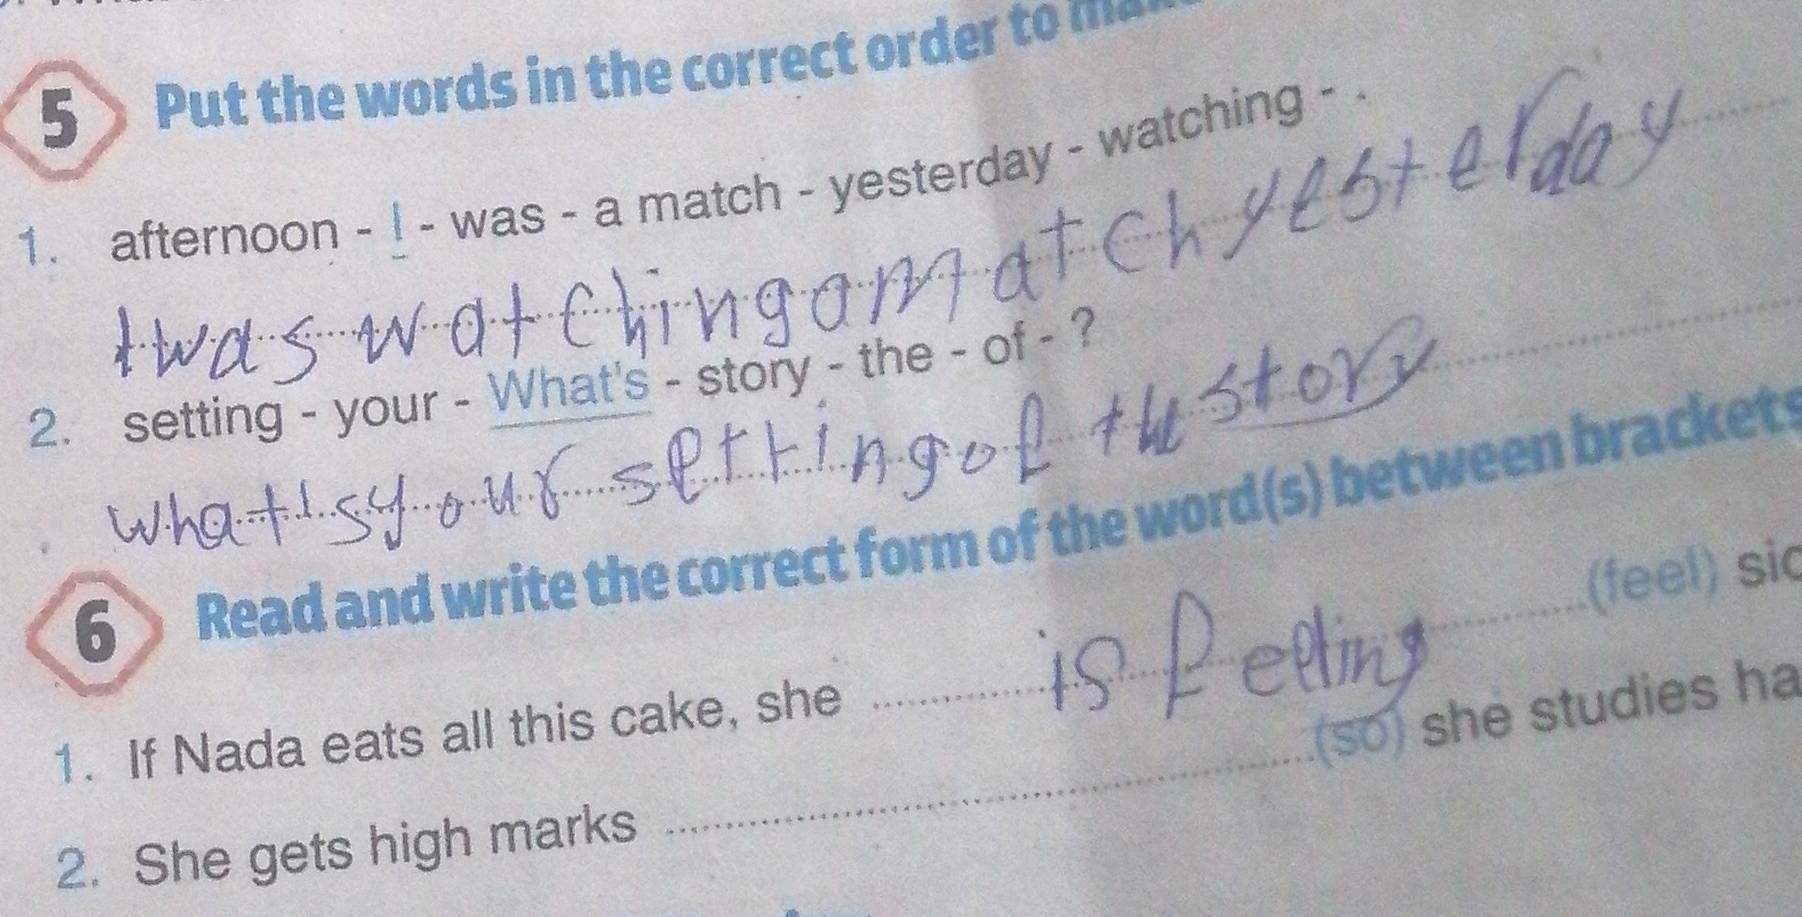 5 Put the words in the correct order to
1. afternoon - I - was - a match - yesterday - watching - .
I was watching a match yesterday
2. setting - your - What's - story - the - of - ?
what's your setting of the story
6 Read and write the correct form of the word(s) between brackets
1. If Nada eats all this cake, she is feeling (feel)
2. She gets high marks (so) she studies